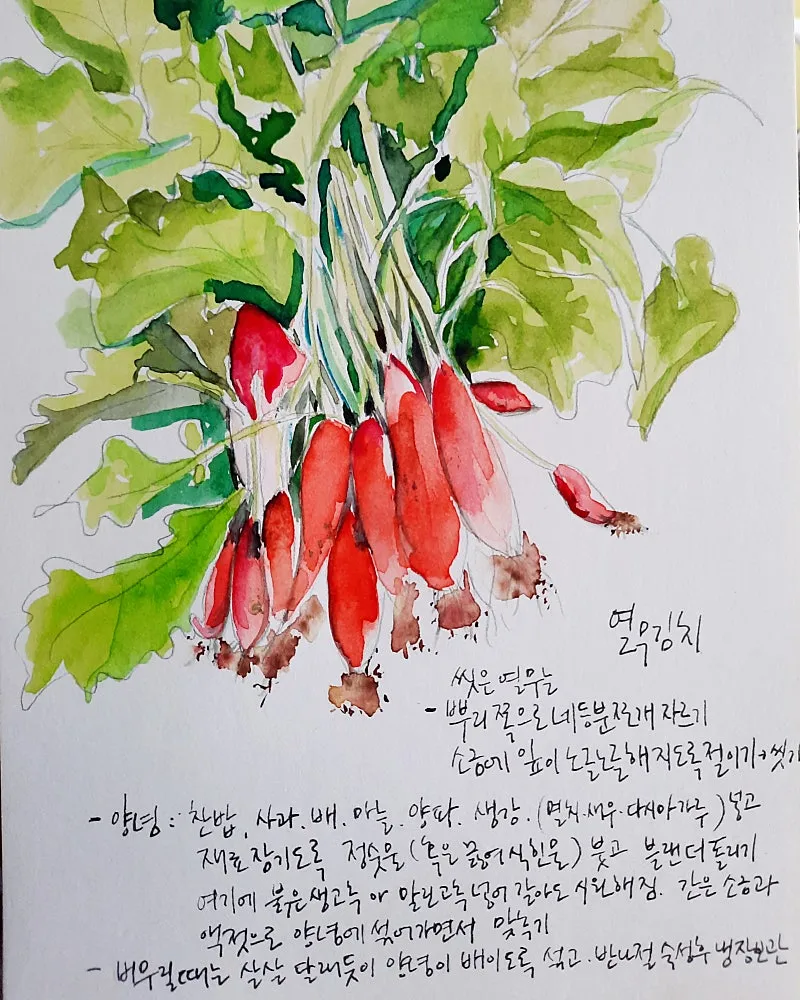 열무김치
씻은 열무는
- 뿌리 쪽으로 네등분쪼개 자르기
소금에 잎이 노글노글해지도록 절이기→씻기
- 양념 : 찬밥, 사과. 배. 마늘. 양파. 생강. (멸치·새우·다시마가루) 넣고
재료 잠기도록 정숫물 (혹은 끓여 식힌물) 붓고 블랜더 돌리기
여기에 붉은생고추 나 말린고추 넣어 갈아도 시원해짐. 간은 소금과
액젓으로 양념에 섞어가면서 맞추기
- 버무릴때는 살살 달래듯이 양념이 배이도록 섞고. 반나절 숙성후 냉장보관